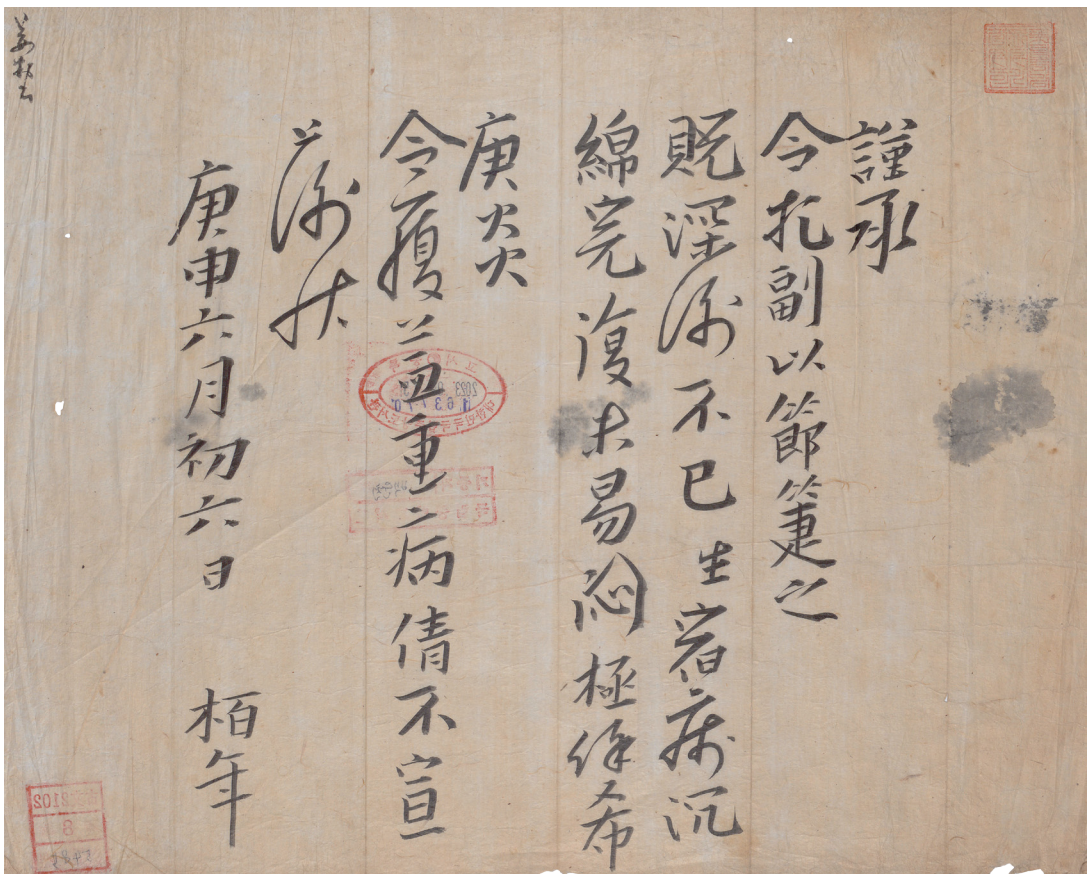 謹承
令札副以節箑之
貺深謝不已生宿痾沉
綿完復未易悶極餘希
庚炎
令履益重〻病倩不宣
上謝狀
庚申六月初六日 栢年
姜